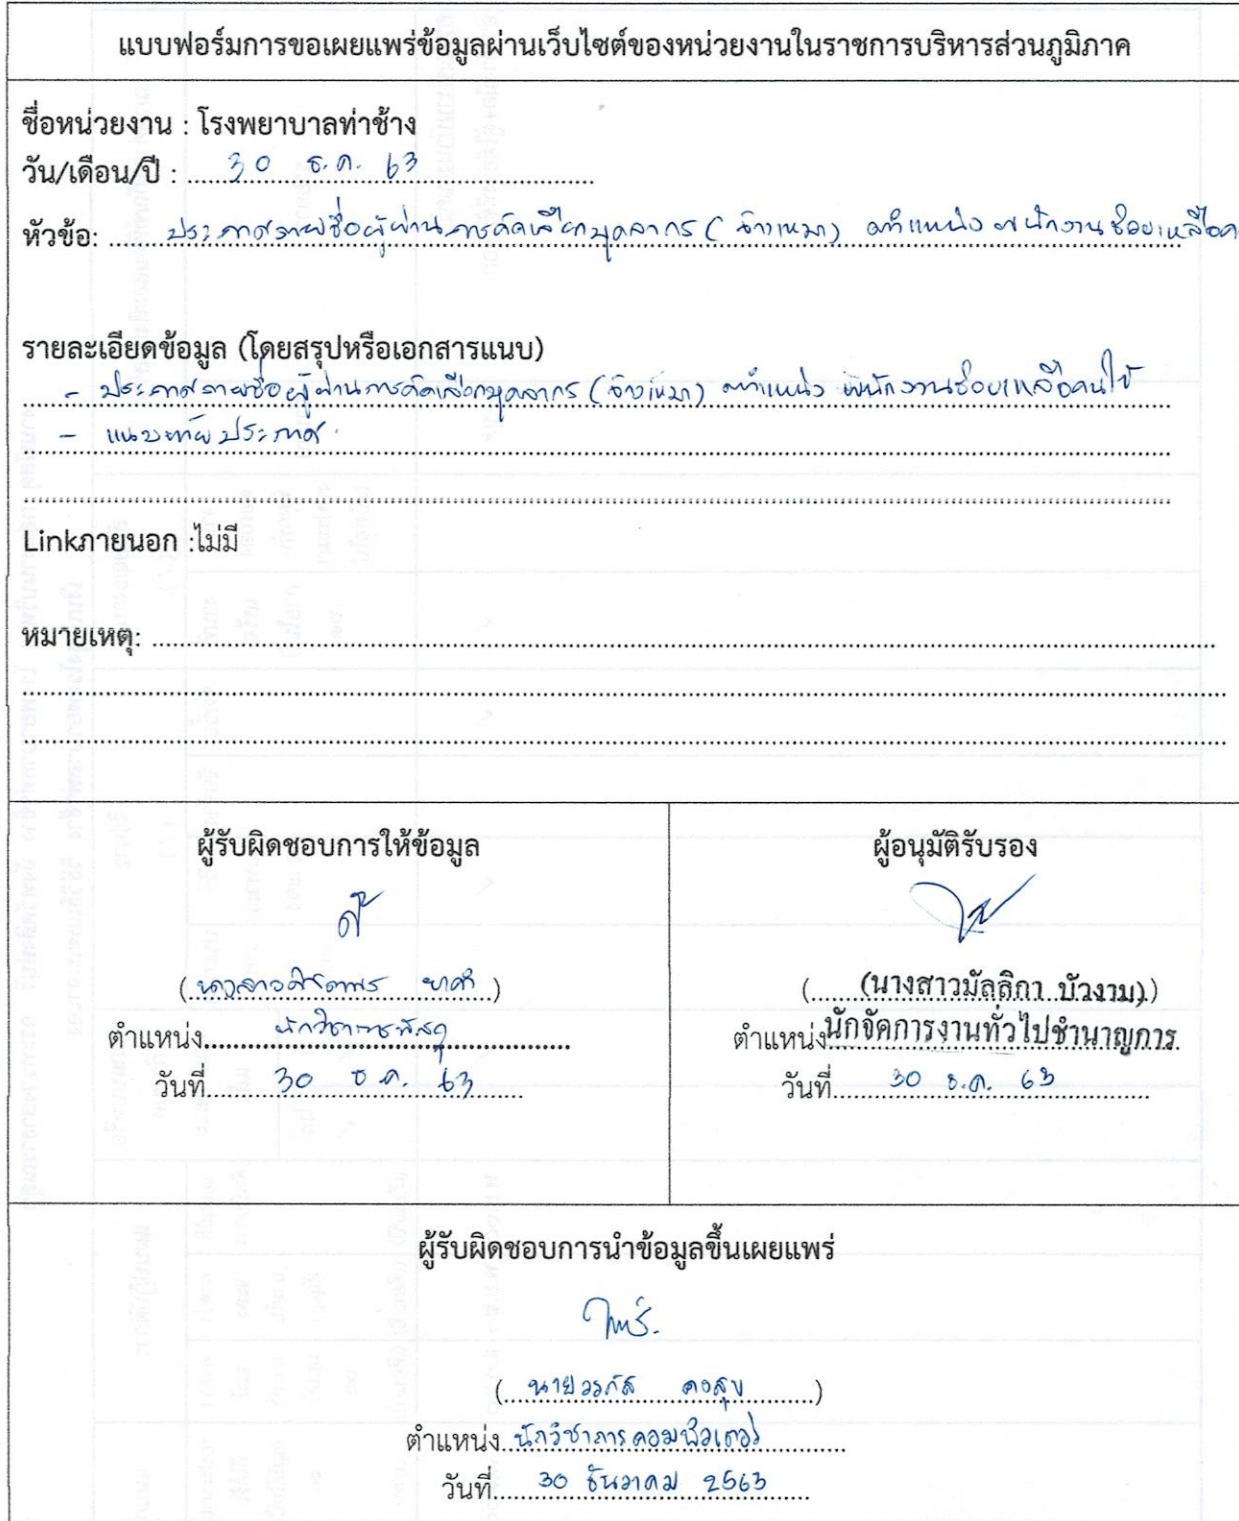 แบบฟอร์มการขอเผยแพร่ข้อมูลผ่านเว็บไซต์ของหน่วยงานในราชการบริหารส่วนภูมิภาค
ชื่อหน่วยงาน : โรงพยาบาลท่าช้าง
วัน/เดือน/ปี : 30 ธ.ค. 63
หัวข้อ: ประกาศรายชื่อผู้ผ่านการคัดเลือกบุคลากร (จ้างเหมา) ตำแหน่ง พนักงานช่วยเหลือค
รายละเอียดข้อมูล (โดยสรุปหรือเอกสารแนบ)
- ประกาศรายชื่อผู้ผ่านการคัดเลือกบุคลากร (จ้างเหมา) ตำแหน่ง พนักงานช่วยเหลือคนไข้
- แนบท้ายประกาศ.
Linkภายนอก :ไม่มี
หมายเหตุ:
ผู้รับผิดชอบการให้ข้อมูล
(นางสาว)
ตำแหน่ง นักวิชาการพัสดุ
วันที่ 30 ธ.ค. 63
ผู้อนุมัติรับรอง
( (นางสาวมัลลิกา บัวงาม) )
ตำแหน่ง นักจัดการงานทั่วไปชำนาญการ
วันที่ 30 ธ.ค. 63
ผู้รับผิดชอบการนำข้อมูลขึ้นเผยแพร่
(นาย)
ตำแหน่ง นักวิชาการคอมพิวเตอร์
วันที่ 30 ธันวาคม 2563